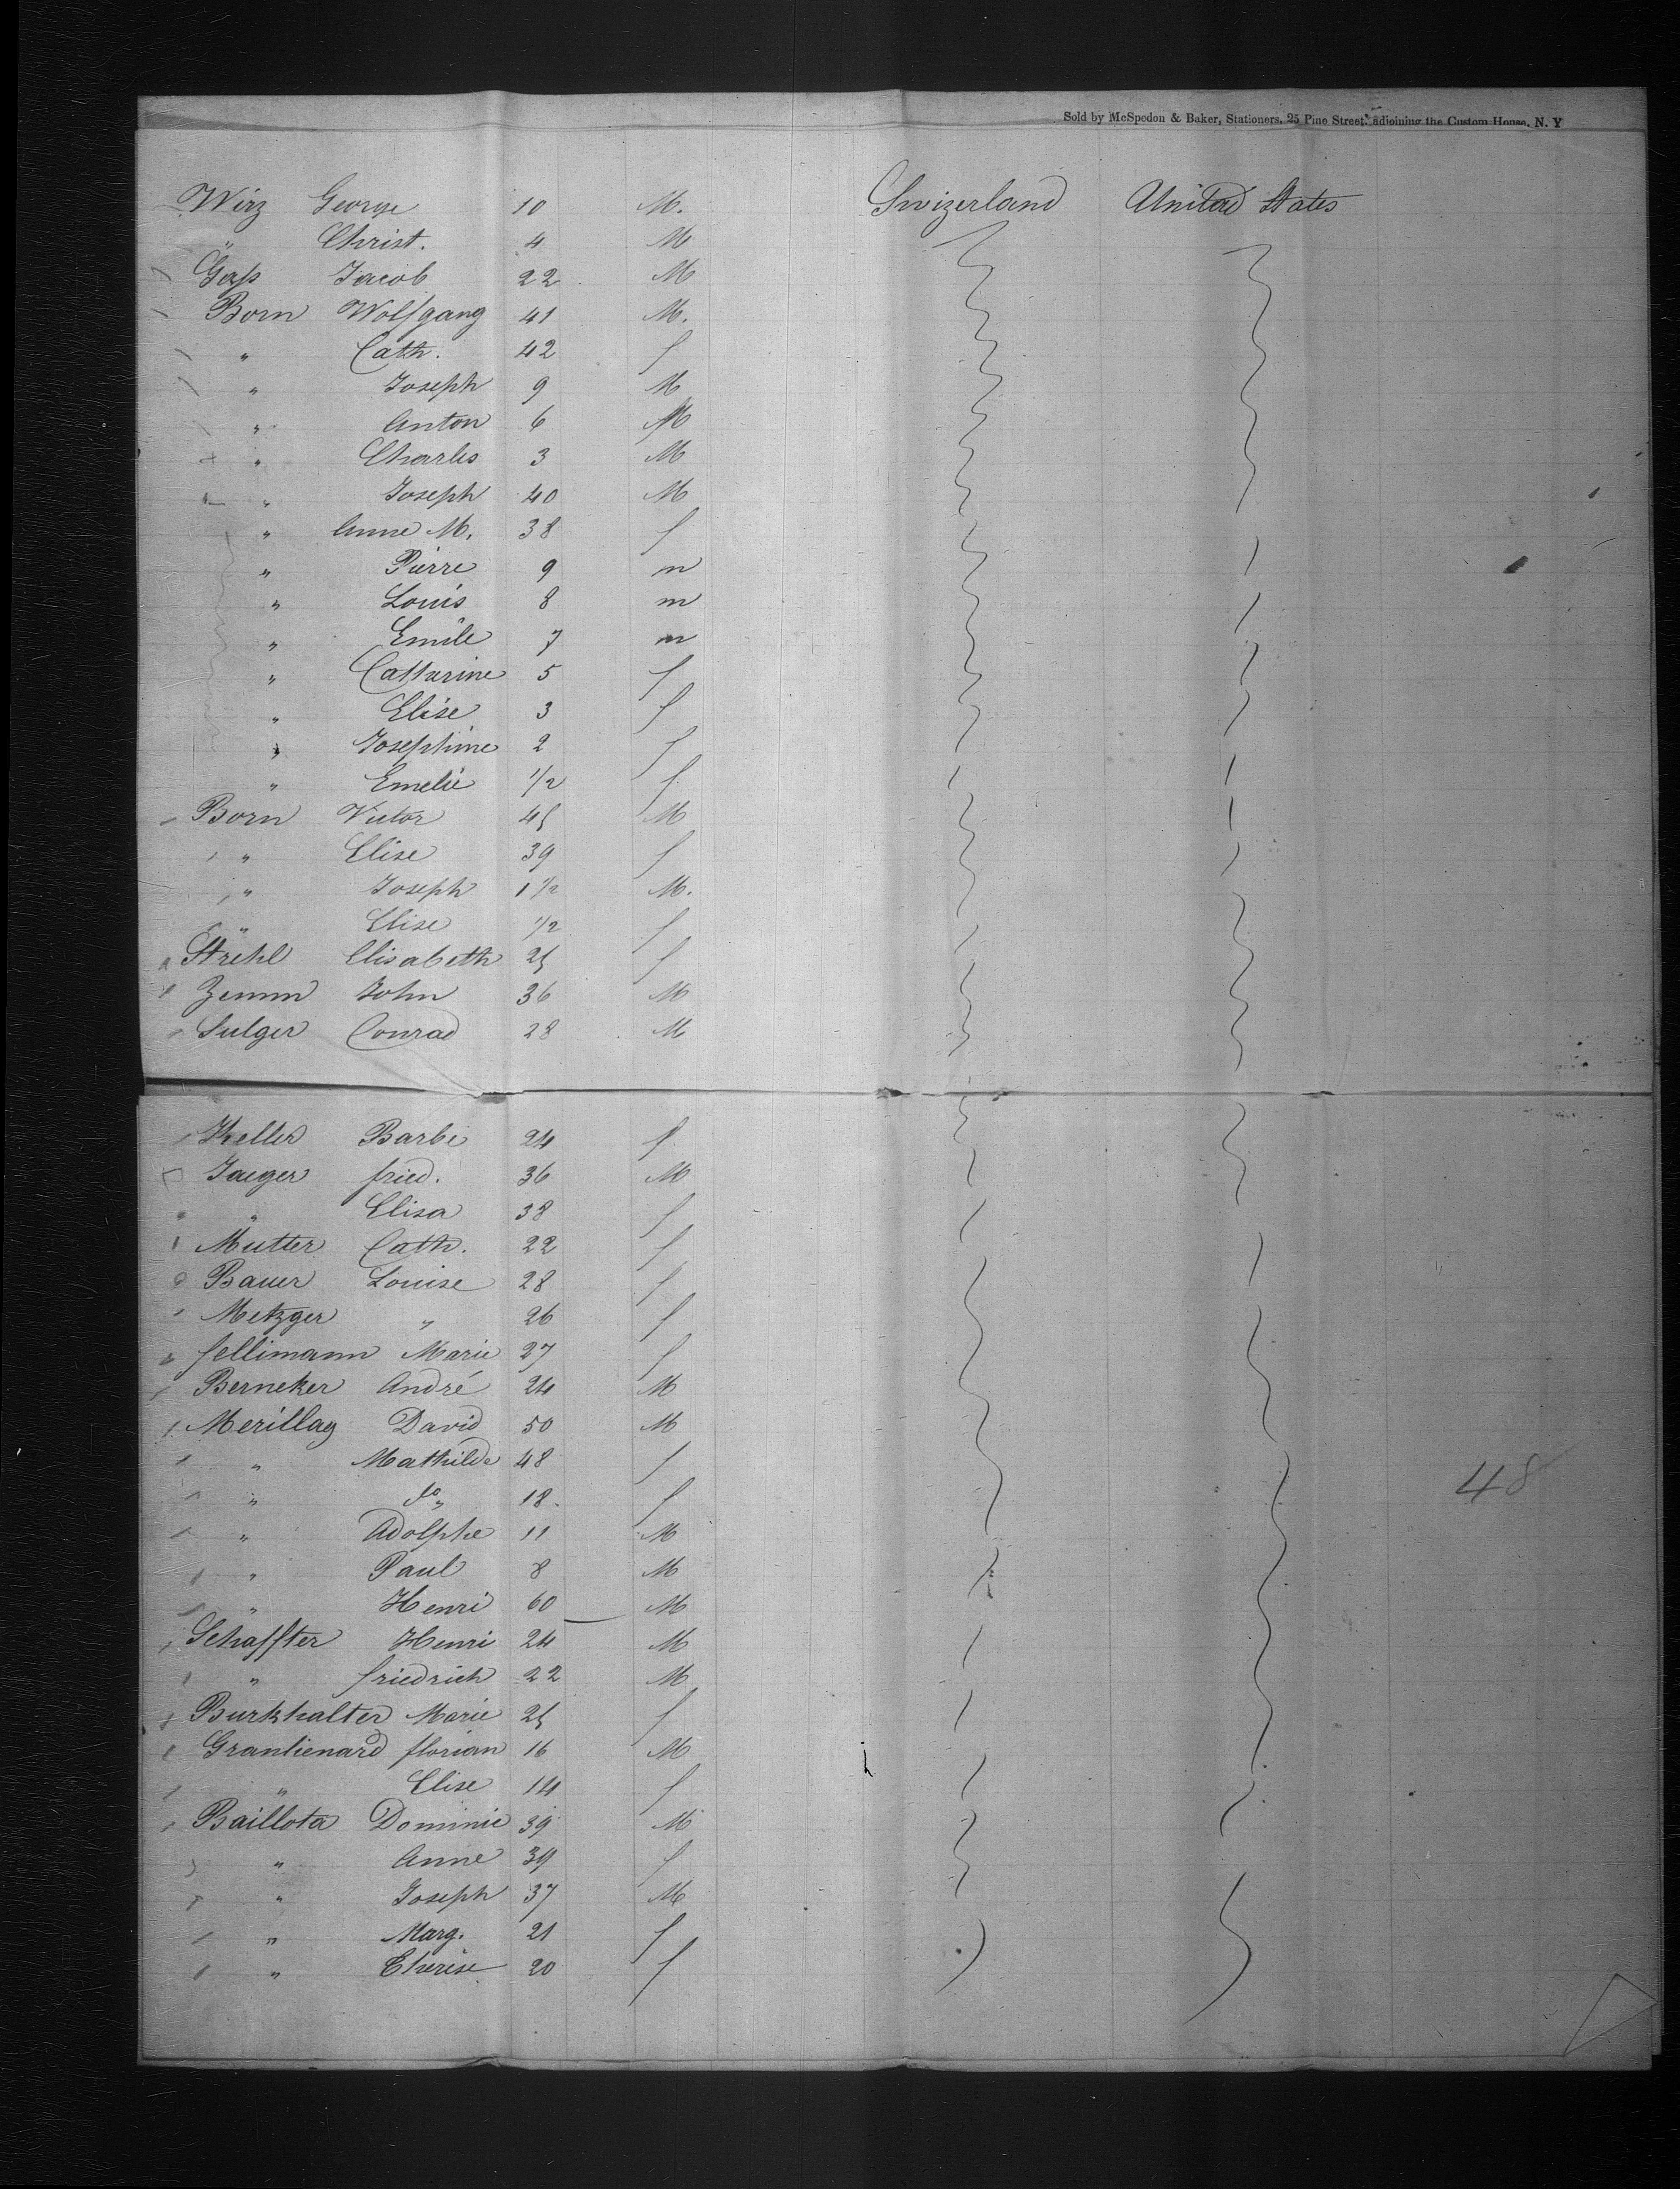 Sold by McSpedon & Baker, Stationers, 25 Pine Street, adjoining the Custom House, N. Y
Wirz George 10 M. Swizerland United States
" Christ. 4 M
Gaſs Jacob 22 M
Born Wolfgang 41 M.
" Cath. 42 f
" Joseph 9 M
" Anton 6 M
" Charles 3 M
" Joseph 40 M
" Anne M. 38 f
" Pierre 9 m
" Louis 8 m
" Emile 7 m
" Catharine 5 f
" Elise 3 f
" Josephine 2 f
" Emelie 1/2 f
Born Victor 45 M
" Elise 39 f
" Joseph 1 1/2 M.
" Elise 1/2 f
Strehl Elisabeth 25 f
Zemm John 36 M
Sulger Conrad 28 M
Keller Barbe 24 f
Jaeger fried. 36 M
" Elisa 38 f
Mutter Cath. 22 f
Bauer Louise 28 f
Metzger " 26 f
fellimann Marie 27 f
Berneker André 24 M
Merillay David 50 M
" Mathilde 48 f 48
" do " 18 f
" Adolphe 11 M
" Paul 8 M
" Henri 60 M
Schaffter Henri 24 M
" friedrich 22 M
Burkhalter Marie 25 f
Granlienard florian 16 M
" Elise 14 f
Baillota Dominic 39 M
" Anne 39 f
" Joseph 37 M
" Marg. 21 f
" Therise 20 f